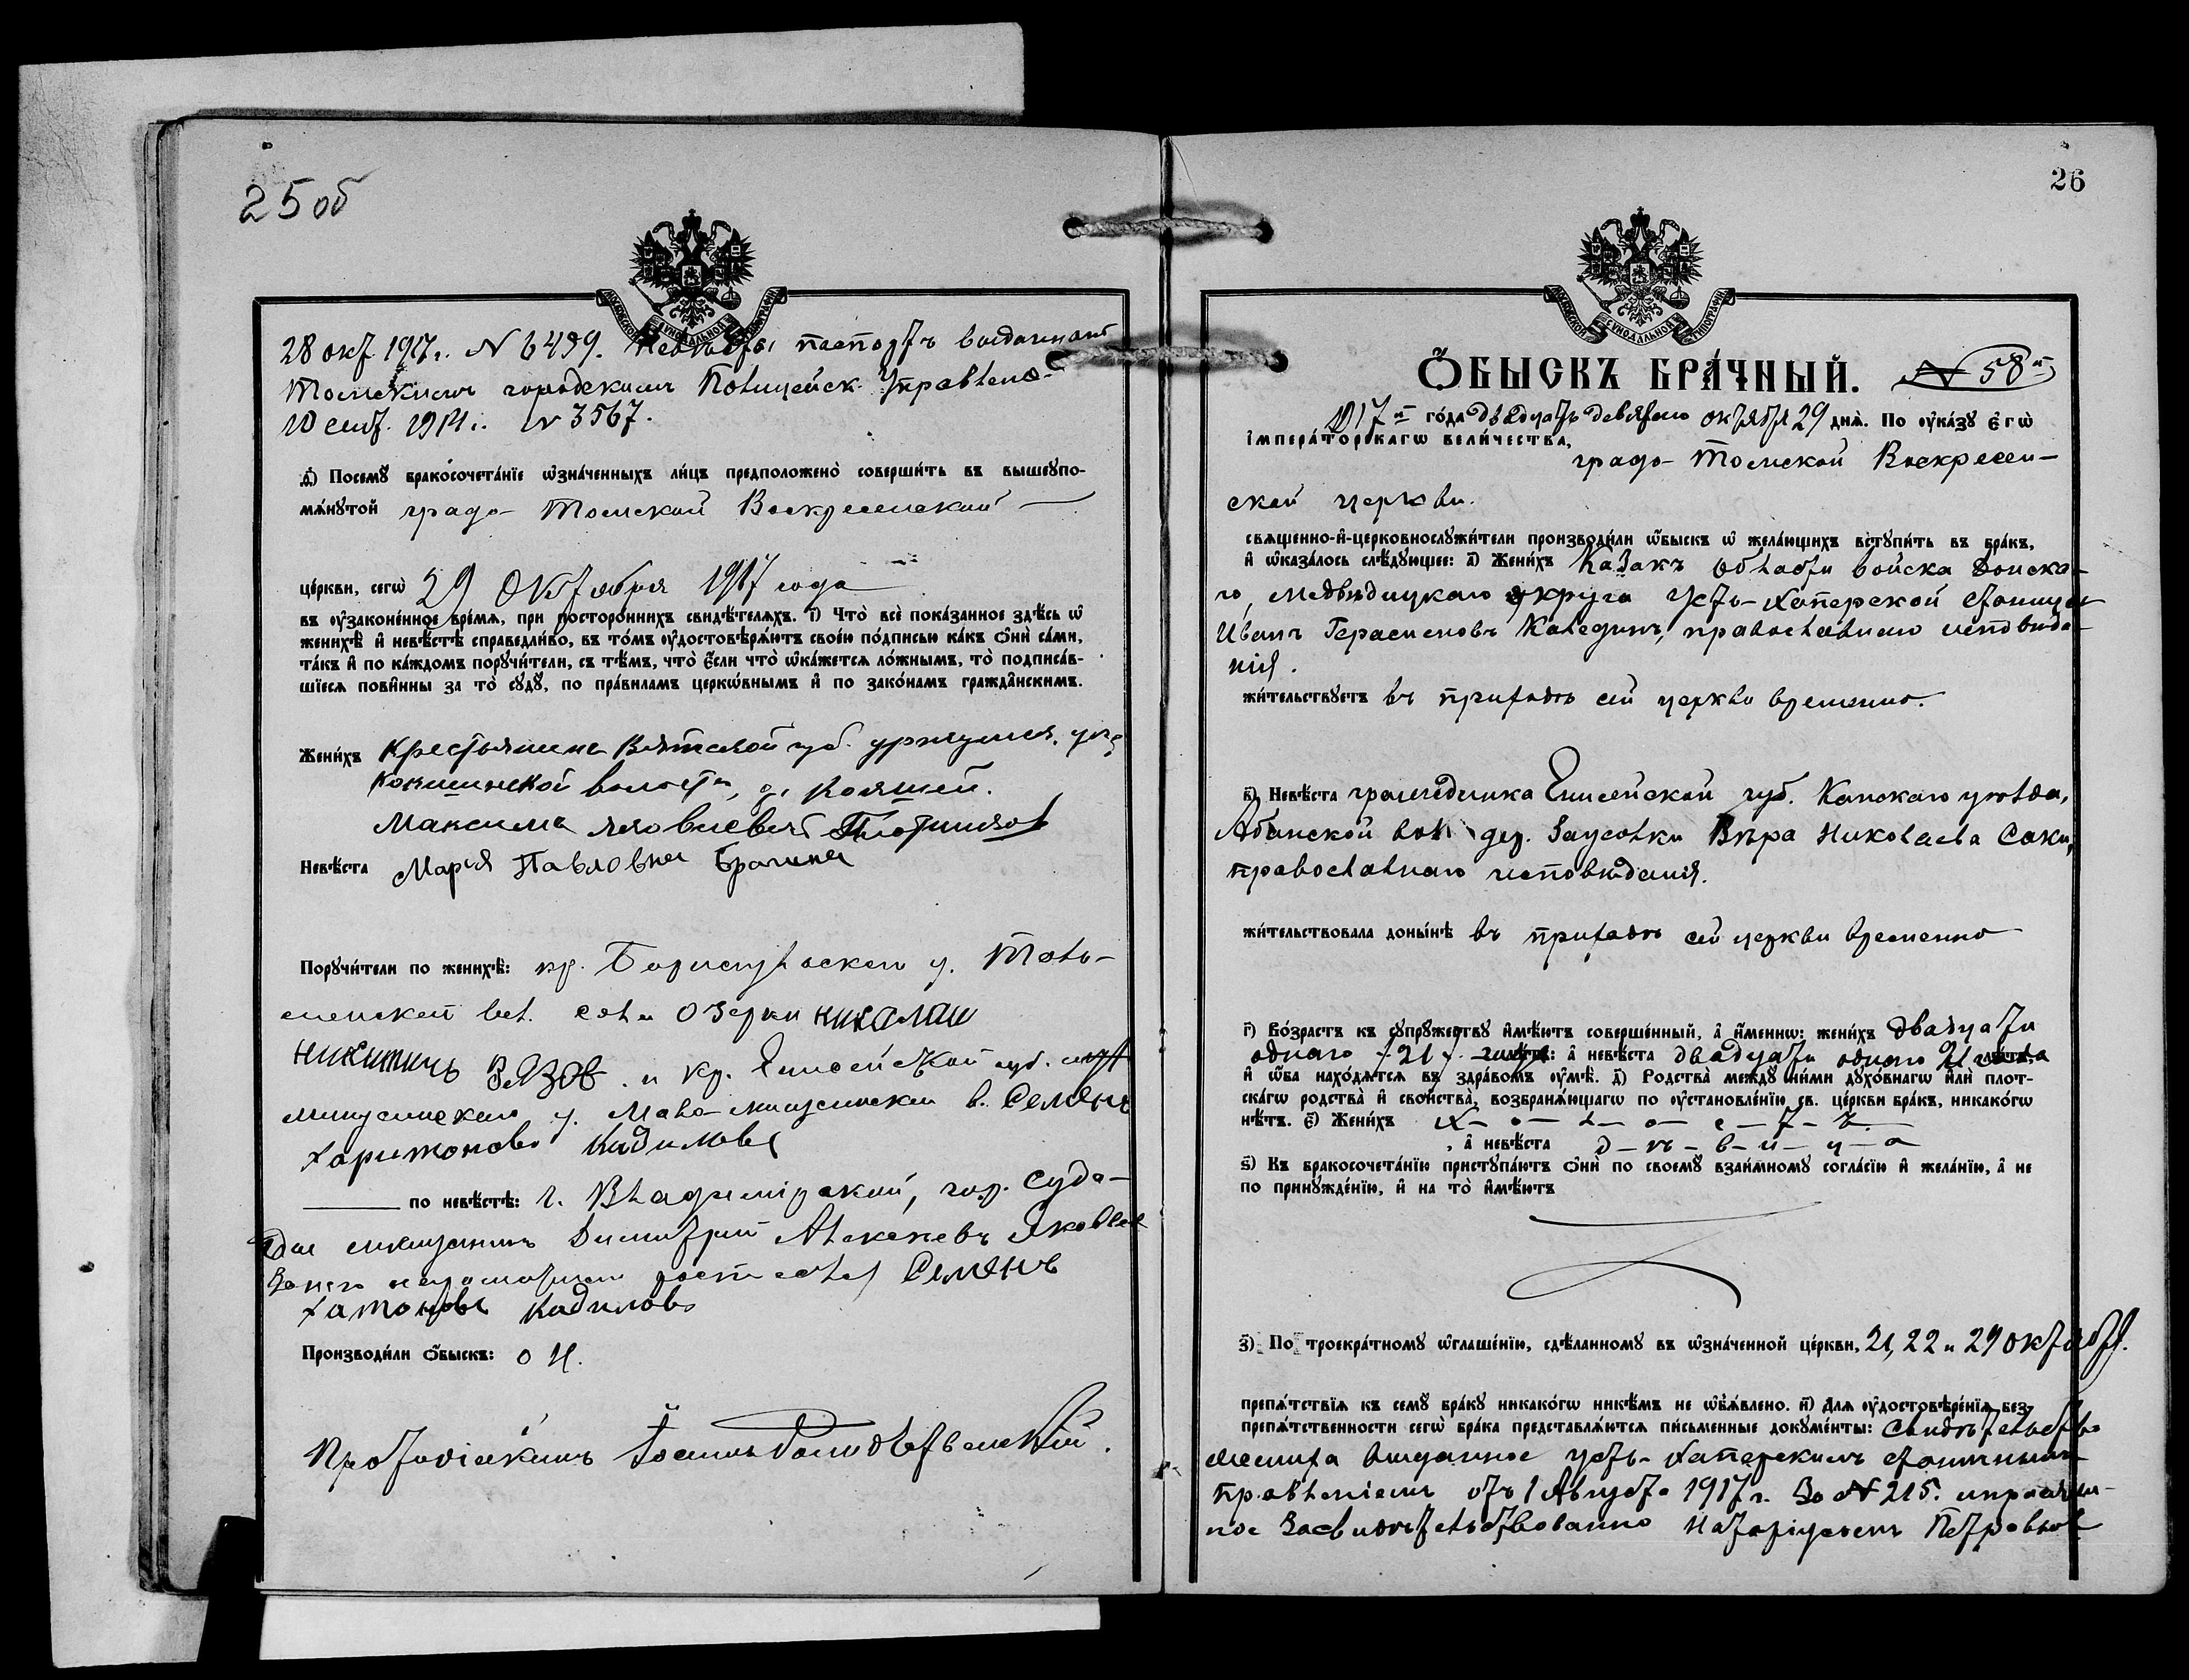 25 об
28 окт 1917 г. № 6499. Невѣсты паспортъ выданный
Томскимъ городскимъ Полицейск. Управлен.
10 сент. 1914 г. № 3567.
д҃) Посемꙋ бракосочетанїе ѡзначенныхъ лицъ предположено совершить въ вышеупо-
мянꙋтой градо-Томской Воскресенской
церкви, сегѡ 29 Октября 1917 года
въ ᲂузаконенное время, при постороннихъ свидѣтеляхъ. і҃) Что все показанное здѣсь ѡ
женихѣ и невѣстѣ справедливо, въ томъ ᲂудостовѣряютъ своею подписью какъ ѻни сами,
такъ и по каждомъ порꙋчители, съ тѣмъ, что если что ѡкажется ложнымъ, то подписав-
шїеся повинны за то сꙋдꙋ, по правиламъ церкѡвнымъ и по законамъ гражданскимъ.
Женихъ Крестьянинъ Вятской губ. уржумск. уѣз.
волости, д.
Максимъ
Невѣста Марія Павловна Брагина
Порꙋчители по женихѣ: кр. у. Толь-
менской вол. села Озерки николаи
никитичъ и кр. Енисейской губ.
минусинскаго у. Мало-минусинской в. Семенъ
харитоновъ Кадиловъ
по невѣстѣ: г. Владимірской, гор. Суда-
Димитрий Алексѣевъ Яковлев
За него неграмотнаго росписался Семенъ
хатоновъ кадиловъ
Производили ѻбыскъ: о н.
Протодіаконъ Іоаннъ Рождественскій.
26
МОСКОВСКОЙ СѴНОДАЛЬНОЙ ТИПОГРАФІИ
ѺБЫСКЪ БРАЧНЫЙ. № 58й
1917 года двадцать девятаго октября 29 дня. По ᲂуказꙋ Егѡ
Імператорскагѡ величества,
градо-Томской Воскресен-
ской церкви.
священно-и-церковнослꙋжители производили ѡбыскъ ѡ желающихъ встꙋпить въ бракъ,
и ѡказалось слѣдующее: а҃) Женихъ Казакъ Области войска Донска-
го, медвѣдицкаго округа Усть-Хоперской станицы
Иванъ Герасимовъ Каледин, православнаго исповѣда-
нія.
жительствꙋетъ въ приходѣ сей церкви временно.
в҃) Невѣста гражданка Енисейской губ. Канскаго уѣзда,
Абанской вол. дер. Заусовки Вѣра Николаева Саки,
православнаго исповѣданія.
жительствовала донынѣ въ приходѣ сей церкви временно
г҃) Возрастъ къ сꙋпрꙋжествꙋ имѣютъ совершенный, а именнѡ: женихъ двадцати
одного - 21 г. лѣтъ: а невѣста двадцати одного 21 года
и ѡба находятся въ здравомъ ᲂумѣ. д҃) Родства междꙋ ними дꙋховнагѡ или плот-
скагѡ родства и свойства, возбраняющагѡ по ᲂустановленїю св. церкви бракъ, никакогѡ
нѣтъ. є҃) Женихъ х-о-л-о-с-т-ъ
, а невѣста д-ѣ-в-и-ц-а
ѕ҃) Къ бракосочетанїю пристꙋпаютъ ѻни по своемꙋ взаимномꙋ согласїю и желанїю, а не
по принꙋжденїю, и на то имѣютъ
з҃) По троекратномꙋ ѡглашенїю, сдѣланномꙋ въ ѡзначенной церкви, 21, 22 и 29 октября.
препятствїя къ семꙋ бракꙋ никакогѡ никѣмъ не ѡбъявлено. и҃) Для ᲂудостовѣренїя без-
препятственности сегѡ брака представляются письменные докꙋменты: Свидѣтельство
жениха выданное Усть-Хоперскимъ станичнымъ
правленіемъ отъ 1 Августа 1917 г. За № 215.
ное Засвидѣтельствованно Натаріусомъ Петровым